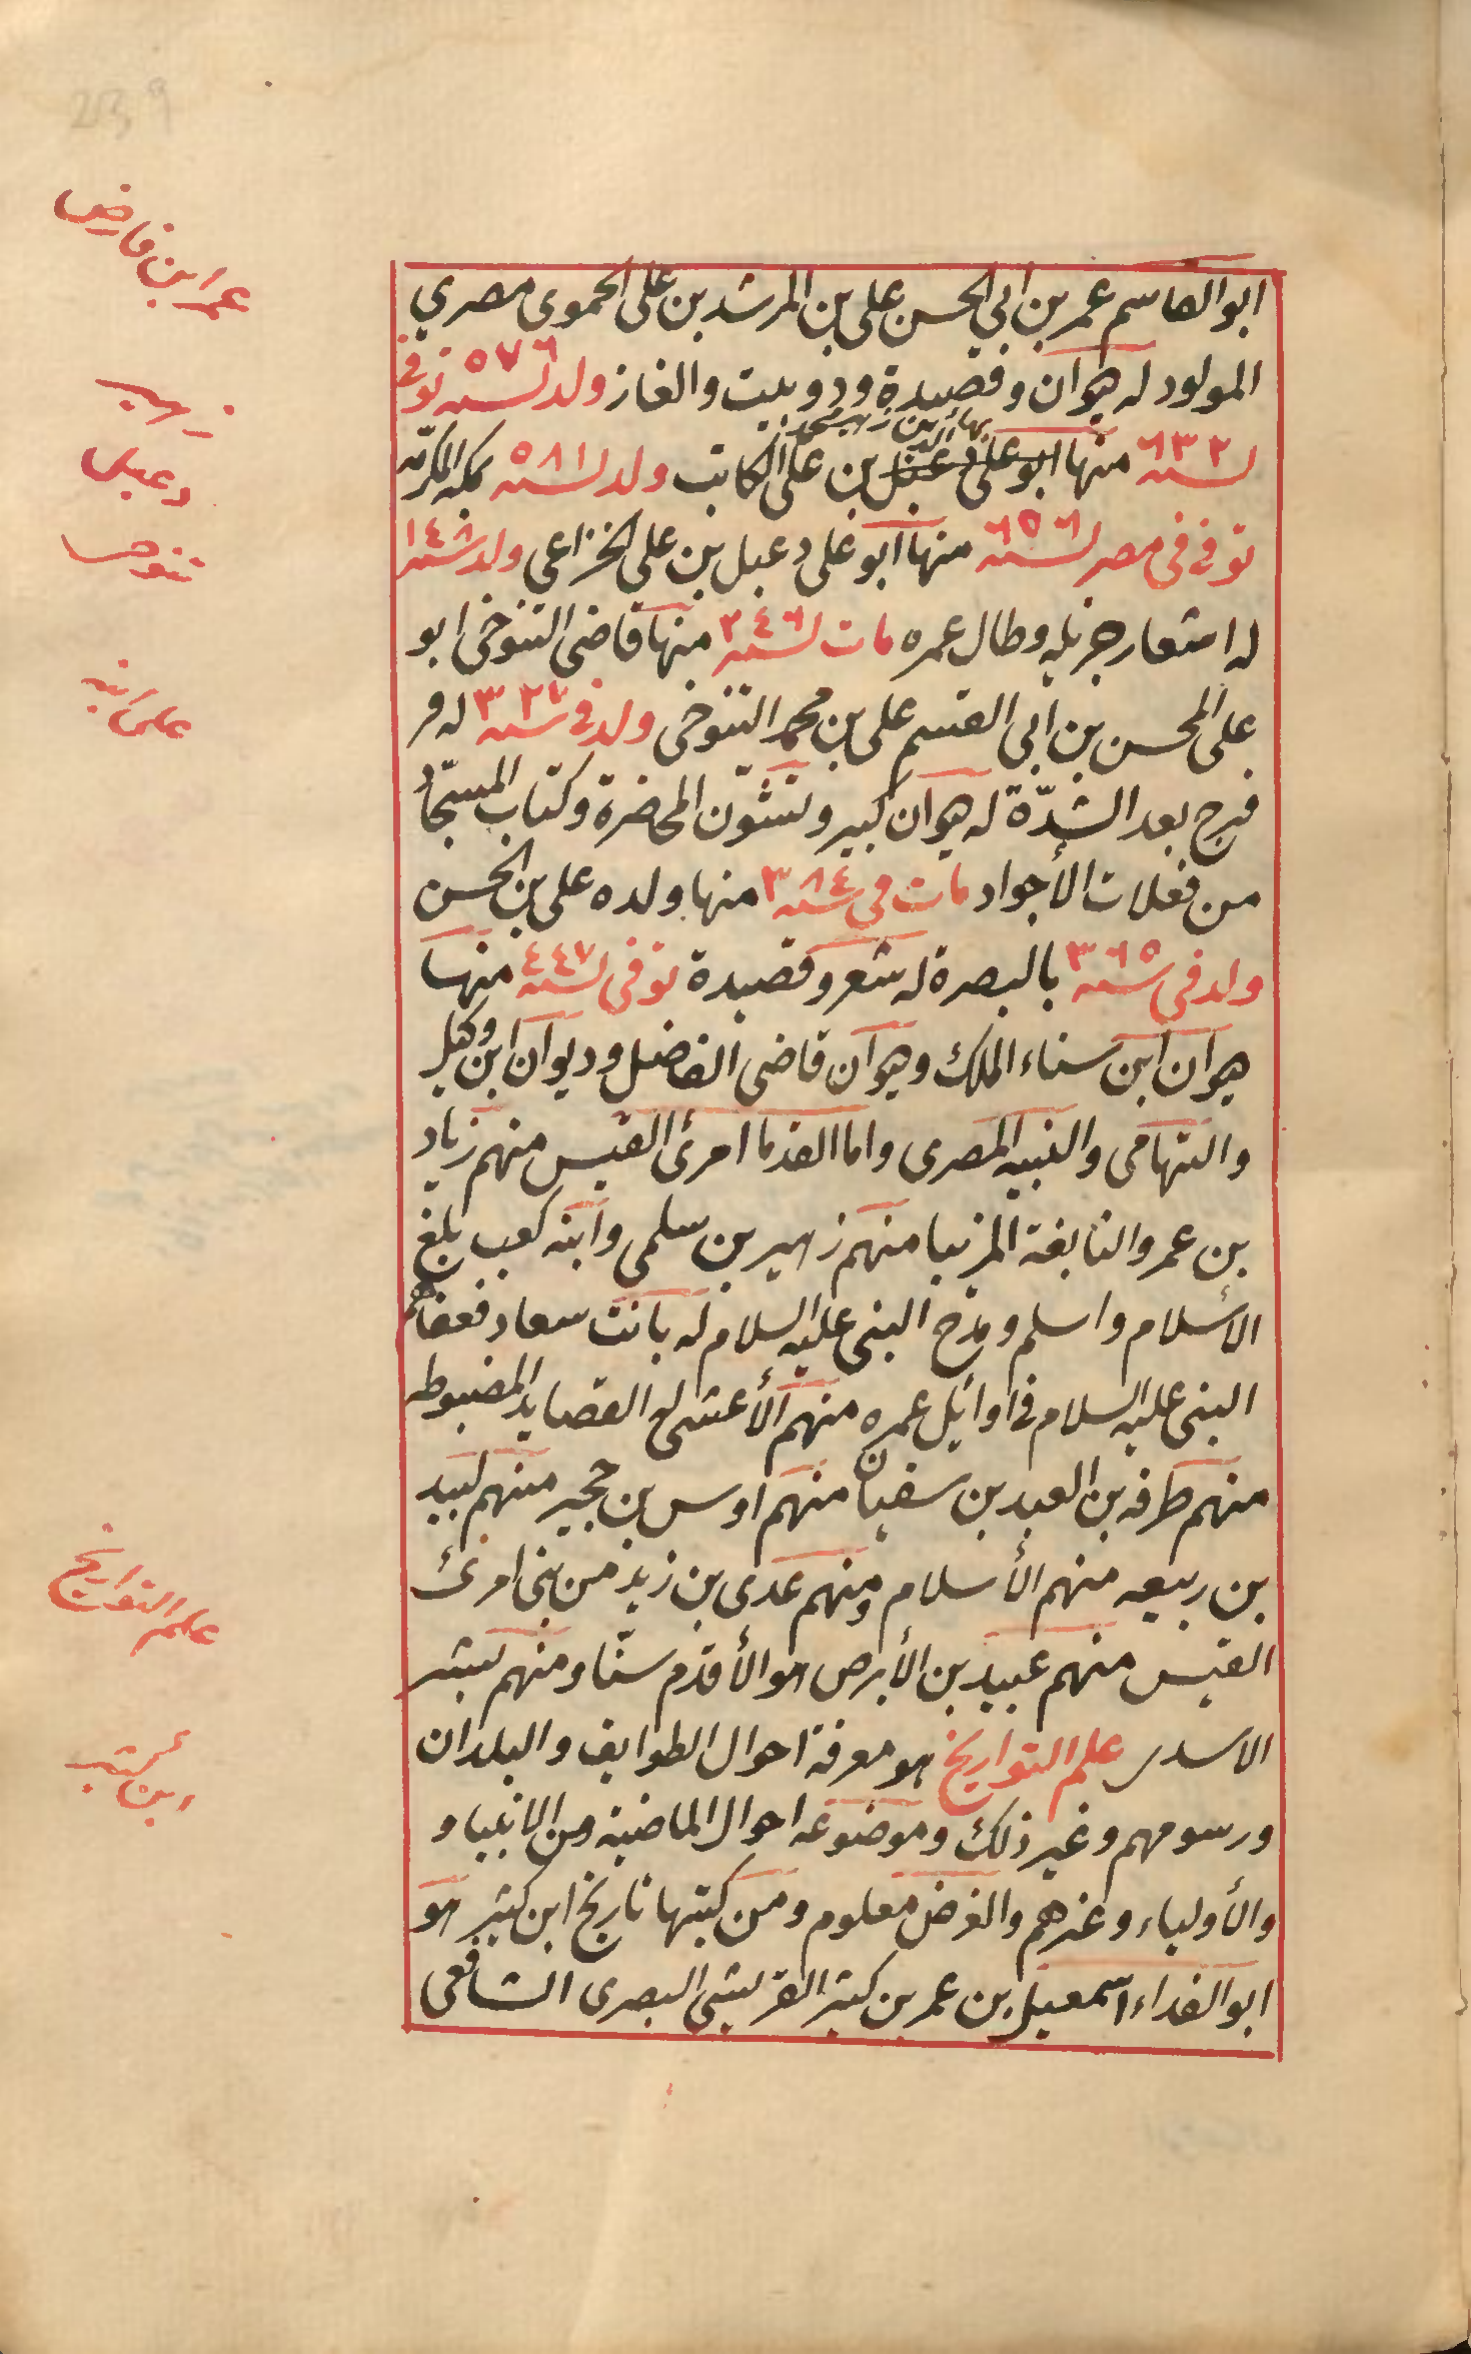 239
عمر ابن فارض
ابو القاسم عمر بن ابي الحسن على بن المرشد بن على الحموى مصري
المولود له ديوان وقصيدة ودوبيت والغاز ولد لسنه ٥٧٦ توفى
زهير
بهاء الدين زهير محمد
لسنه ٦٣٢ منها ابو على دعبل بن على الكاتب ولد لسنه ٥٨١ بمكه المكرمه
دعبل
توفى فى مصر لسنه ٦٥٦ منها ابو على دعبل بن على الخزاعى ولد لسنه ١٤٨
تنوخى
له اشعار جزيله وطال عمره مات لسنه ٢٤٦ منها قاضى التنوخى ابو
على المحسن بن ابى القسم على بن محمد التنوخى ولد فى سنه ٣٢٧ له
على ابنه
فرج بعد الشدّة له ديوان كبير ونشون المحاضرة وكتاب المستجاد
من فعلات الأجواد مات فى سنه ٣٨٤ منها ولده على بن الحسن
ولد فى سنه ٣٦٥ بالبصرة له شعر وقصيدة توفى لسنه ٤٤٧ منها
ديوان ابن سناء الملك وديوان قاضى الفاضل وديوان ابن وكيل
والتهامى والنبيه المصرى واما القدما امرئ القيس منهم زياد
بن عمرو النابغة المزنيا منهم زهير بن سلمى وابنه كعب بلغ
الأسلام واسلم ومدح النبى عليه السلام له بانت سعاد فعفا
النبى عليه السلام فى اوائل عمره منهم الأعشى له القصايد المضبوطه
منهم طرفه بن العبد بن سفيان منهم اوس بن حجير منهم لبيد
بن ربيعه منهم الأسلام ومنهم عدى بن زيد من بنى امرئ
القيس منهم عبيد بن الأبرص هو الأقدم سنّا ومنهم بشر
الاسدى علم التواريخ هو معرفة احوال الطوايف والبلدان
علم التواريخ
ورسومهم وغير ذلك وموضوعه احوال الماضية من الانبياء و
والأولياء وغيرهم والغرض معلوم ومن كتبها تاريخ ابن كثير هو
ابن كثير
ابو الفداء اسمعيل بن عمر بن كثير القريشى البصرى الشافعى